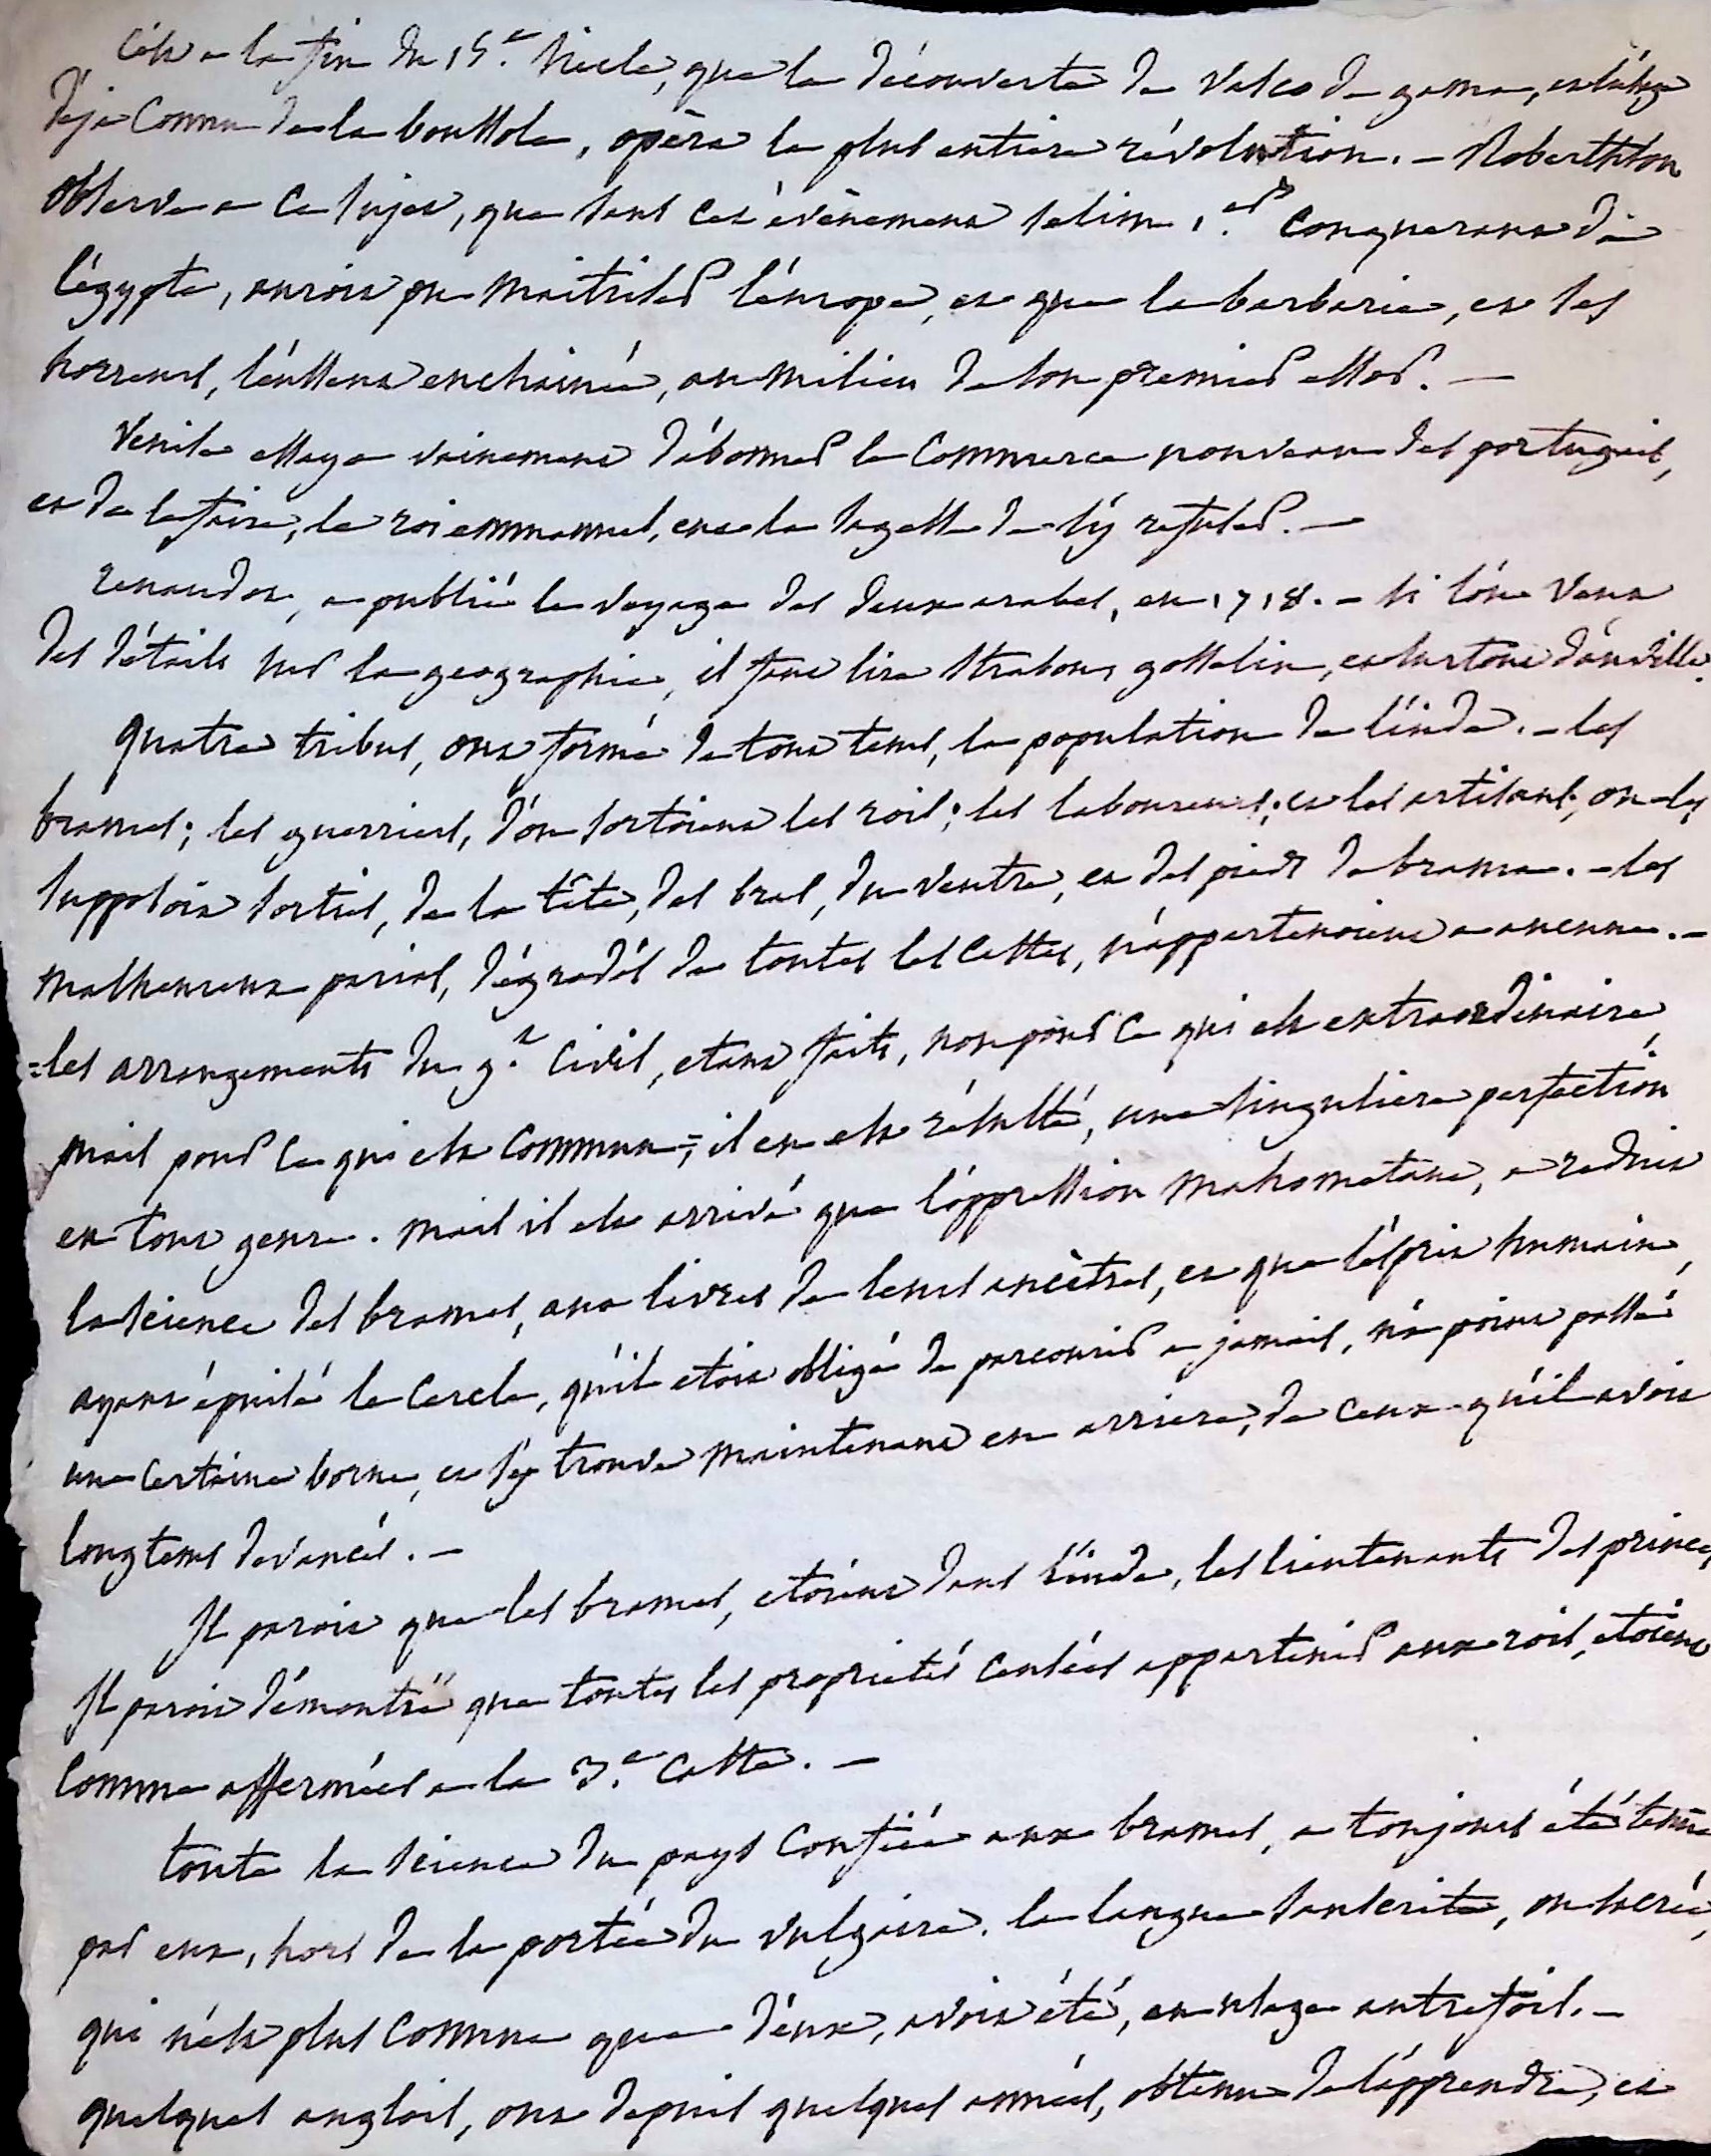 C'est a la fin du 15.e siecle, que la découverte de Vasco de gama, et l'usage
déja Connu de la boussole, opèra la plus entiere révolution. – Robertston
observe a ce sujet, que sans ces évènemens selim 1.er Conquerant de
l'égypte, auroit pu maitriser l'éurope, et que la barbarie, et ses
horreurs, l'eussent enchainée, au milieu de son premier essor. –
Venise essaya vainement d'abonner le Commerce nouveau des portugais,
et de le faire, le roi emmanuel, eut la sagesse de s'y refuser. –
renaudot, a publié le voyage des deux arabes, en 1718. – si l'on veut
des détails sur la geographie, il faut lire strabon, gosselin, et surtout d'anville.
quatre tribus, ont formé de tout tems, la population de l'inde. – les
brames; les guerriers, d'ou sortoient les rois; les laboureurs; et les artisans; on les
supposoit sortis, de la tête, des bras, du ventre, et des pieds de brama. – les
malheureux parias, dégradés de toutes les castes, n'appartenoient a aucune. –
=les arrangements du g.t Civil, etant faits, non pour ce qui est extraordinaire,
mais pour ce qui est Commun=, il en est résulté, une singuliere perfection
en tout genre. mais il est arrivé que l'oppression mahometane, a reduit
la science des brames, aux livres de leurs ancètres, et que l'esprit humain,
ayant épuisé le Cercle, qu'il etoit obligé de parcourir a jamais, n'a point passé
une certaine borne, et s'y trouve maintenant en arriere, de ceux qu'il avoit
longtems devancés. –
Il paroit que les brames, etoient dans l'inde, les lieutenants des princes
Il paroit démontré que toutes les proprietés censées appartenir aux rois, etoient
Comme affermées a la 3.e Caste. –
toute la science du pays Confiée aux brames, a toujours été tenue
par eux, hors de la portée du vulgaire. la langue sanscrite, ou sacrée,
qui n'est plus Connue que d'eux, avoit été, en usage autrefois. –
quelques anglois, ont depuis quelques années, obtenu de l'apprendre, et